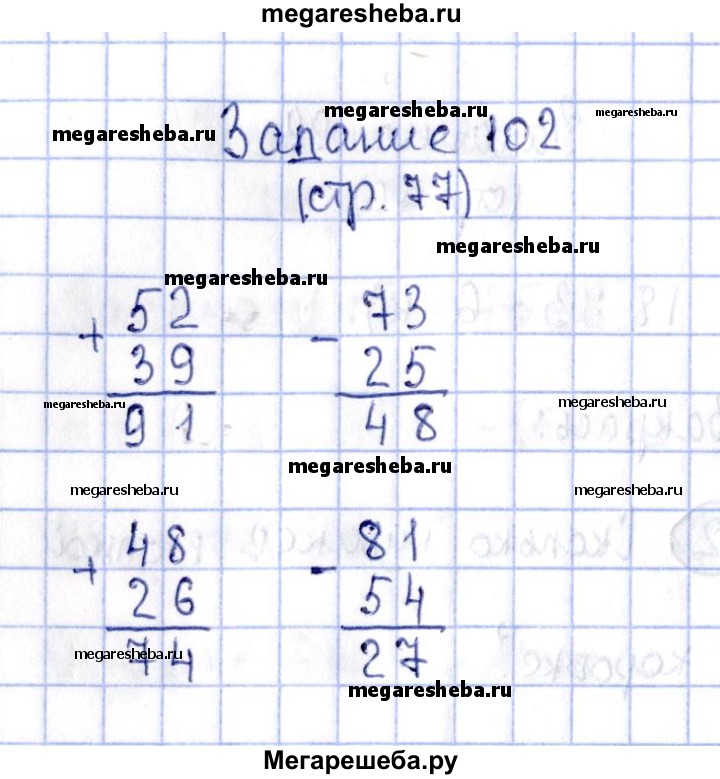 megaresheba.ru
megaresheba.ru megaresheba.ru megaresheba.ru
Задание 102
(стр. 77)
megaresheba.ru
megaresheba.ru
52 73
+ -
39 25
megaresheba.ru megaresheba.ru
91 48
megaresheba.ru
megaresheba.ru megaresheba.ru
48 81
+ -
26 54
megaresheba.ru megaresheba.ru
74 27
megaresheba.ru
Мегарешеба.ру